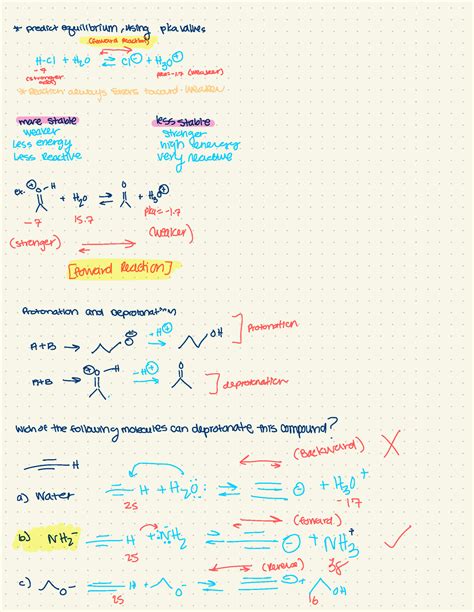 * predict equilibrium, using pka values
(forward reaction)
H-Cl + H₂O ⇌ Cl⊖ + H₃O⊕
-7 pka=-1.7 (weaker)
(stronger acid)
* Reaction always favors toward weaker
more stable less stable
weaker stronger
less energy high energy
less reactive very reactive
Ex. ⊕ O H O
+ H₂O ⇌ + H₃O⊕
-7 15.7 pka=-1.7
(stronger) (weaker)
[forward Reaction]
Protonation and Deprotonation
A+B → O⊖ -H⊕ → OH ] Protonation
A+B → ⊕O H -H⊕ → O ] deprotonation
Which of the following molecules can deprotonate this compound?
≡-H
(Backward) X
a) Water ≡-H + H₂O: ⇌ ≡⊖ + H₃O⁺
25 -17
(forward)
b) NH₂⁻ ≡-H + :NH₂ ⇌ ≡⊖ + NH₃⁺ ✓
25 38
(Reverse)
c) O⁻ ≡-H + O⁻ ⇌ ≡⊖ + OH
25 16